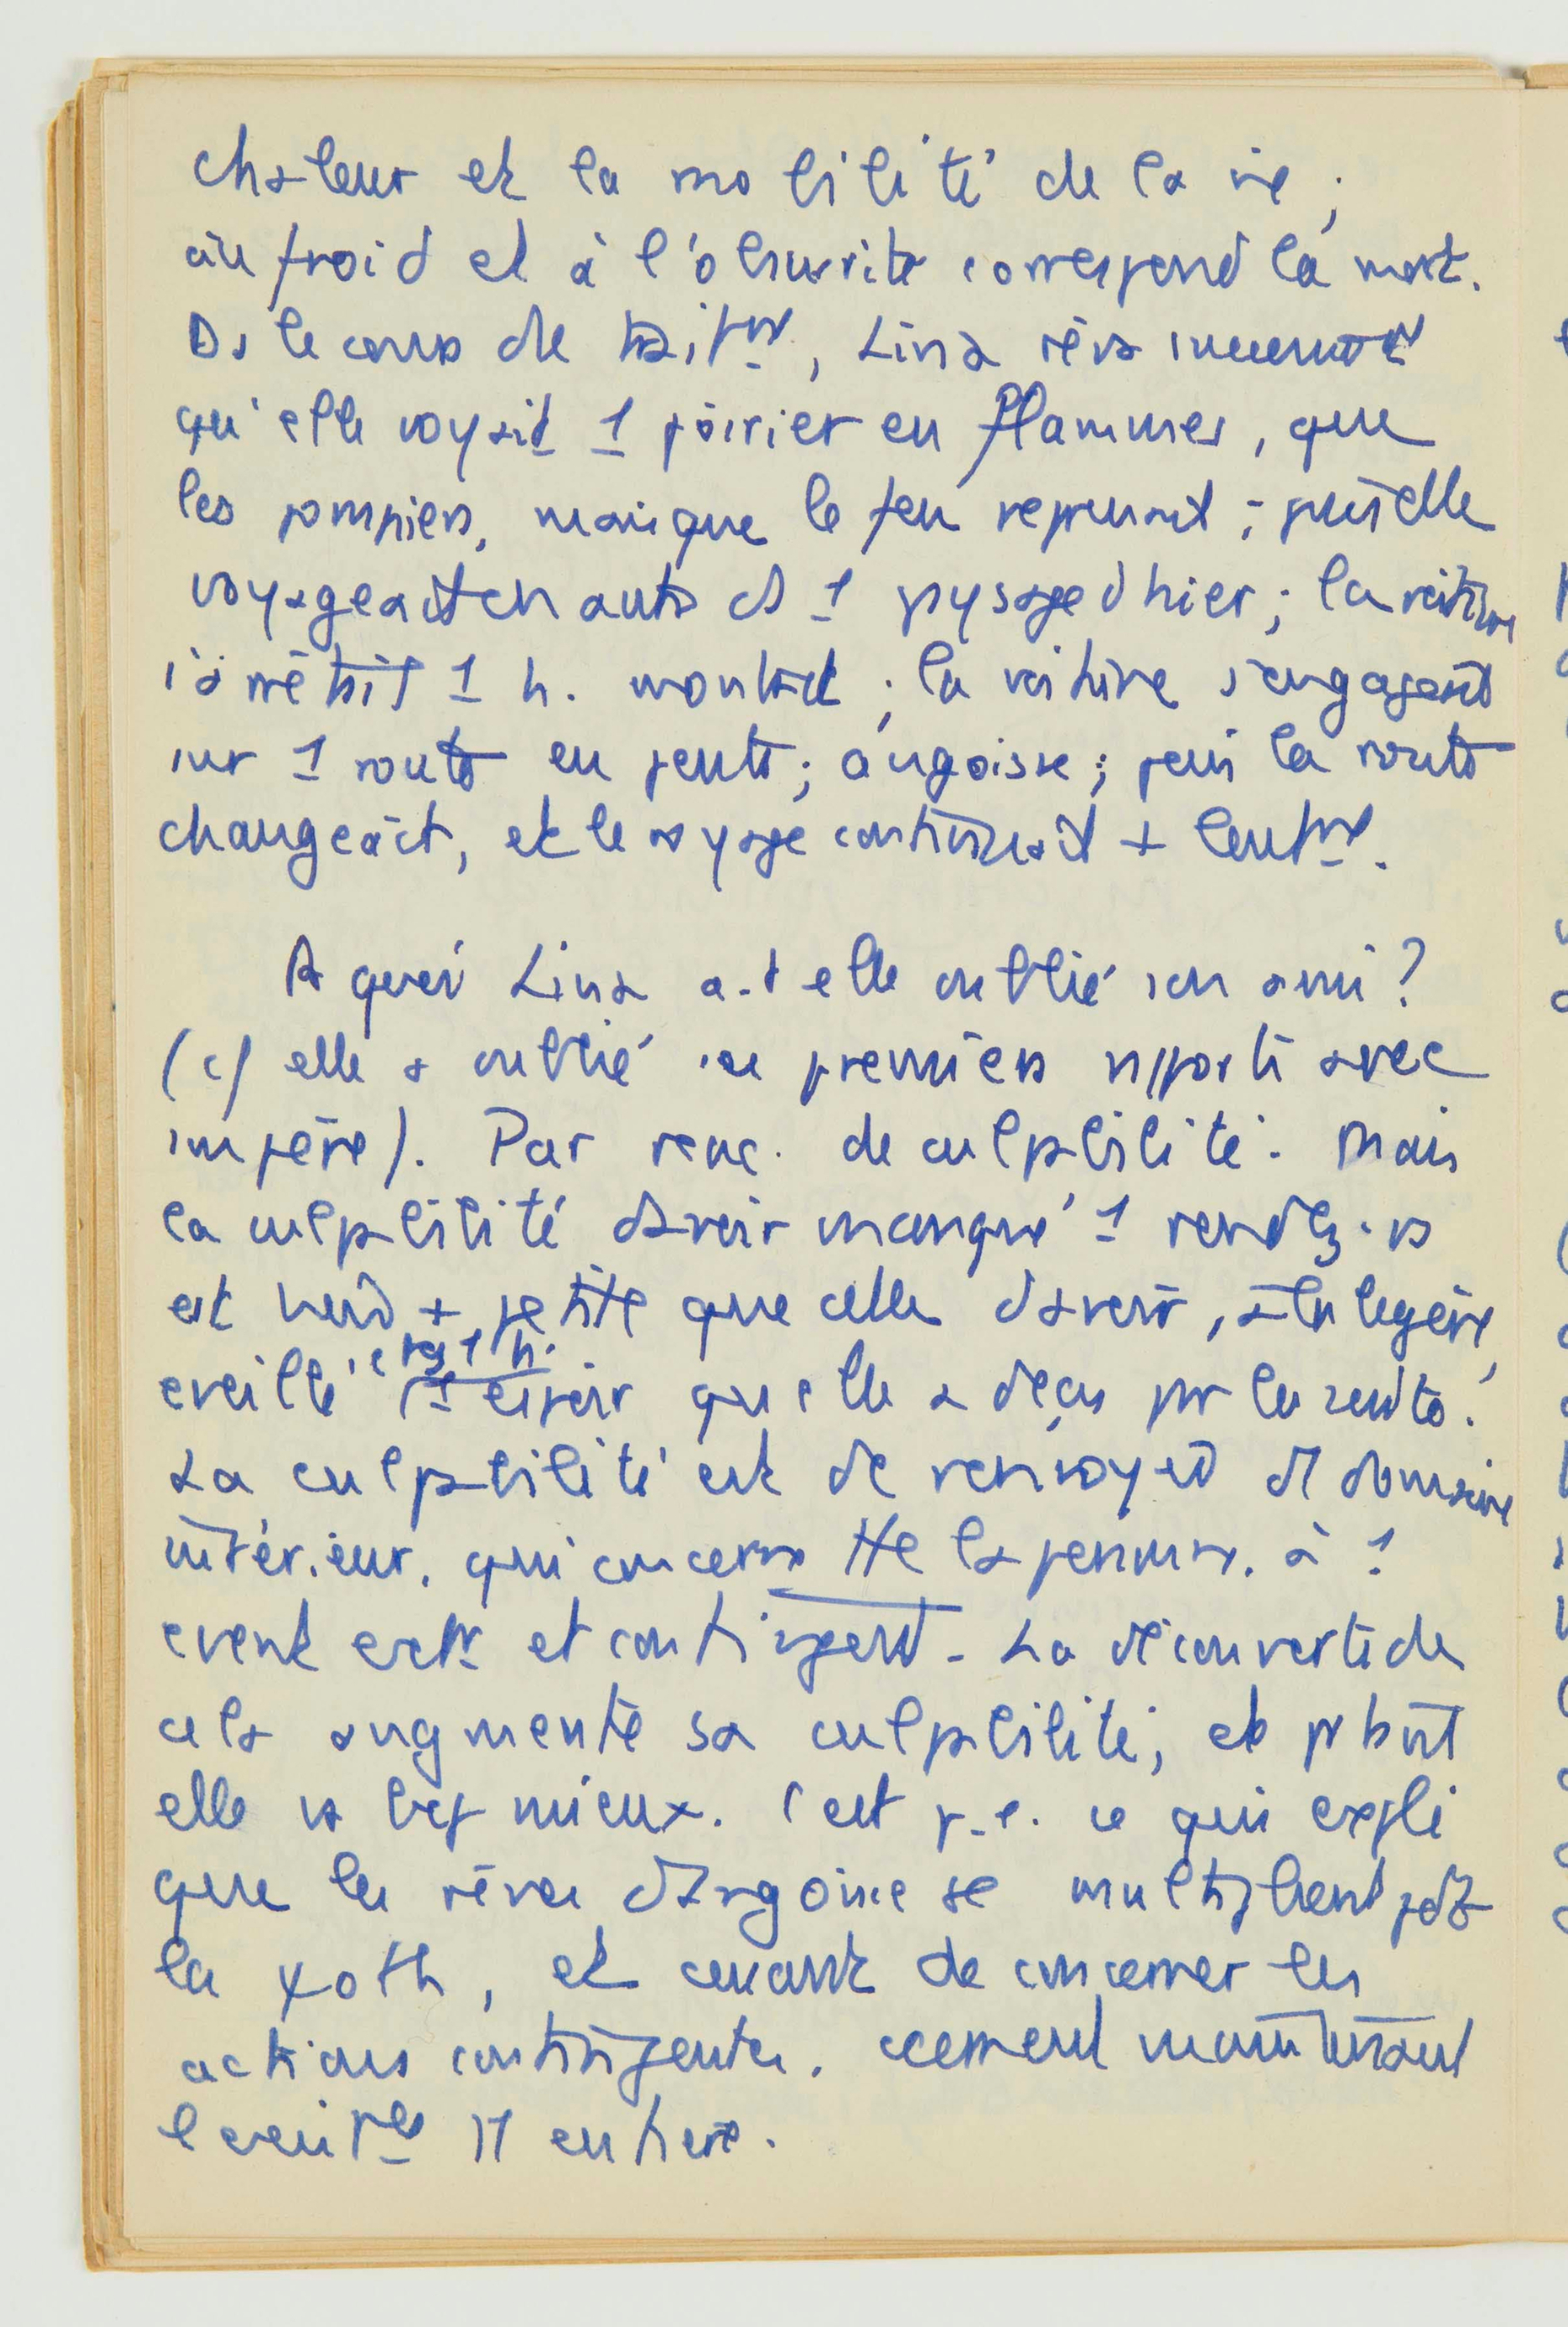 chaleur et la mobilité de la vie ;
au froid et à l'obscurité correspond la mort.
Ds le cours de trait^mt, Lina rêva
qu'elle voyait 1 poirier en flammes, que
les pompiers, mais que le feu reprenait ; puis elle
voyageait en auto ds 1 paysage d'hiver ; la voiture
s'arrêtait 1 h. montait ; la voiture s'engageait
sur 1 route en pente ; angoisse ; puis la route
changeait, et le voyage continuait + lent^mt.
A quoi Lina a-t elle oublié son ami ?
(cf elle a oublié ses premiers rapports avec
son père). Par sent. de culpabilité. Mais
la culpabilité d'avoir manqué 1 rendez-vs
est + petite que celle d'avoir, à la légère,
éveillé chez 1 h. 1 espoir qu'elle a déçu par la suite.
La culpabilité est de domaine
intérieur, qui concerne tte la personne, à 1
évent ext^r et contingent. La découverte de
cela augmente sa culpabilité ; et pourtant
elle va bcp mieux. C'est p.-ê. ce qui expli
que les rêves d'angoisse se multiplient pdt
la ψoth, et cessant de concerner les
actions contingentes, cernent maintenant
entière.